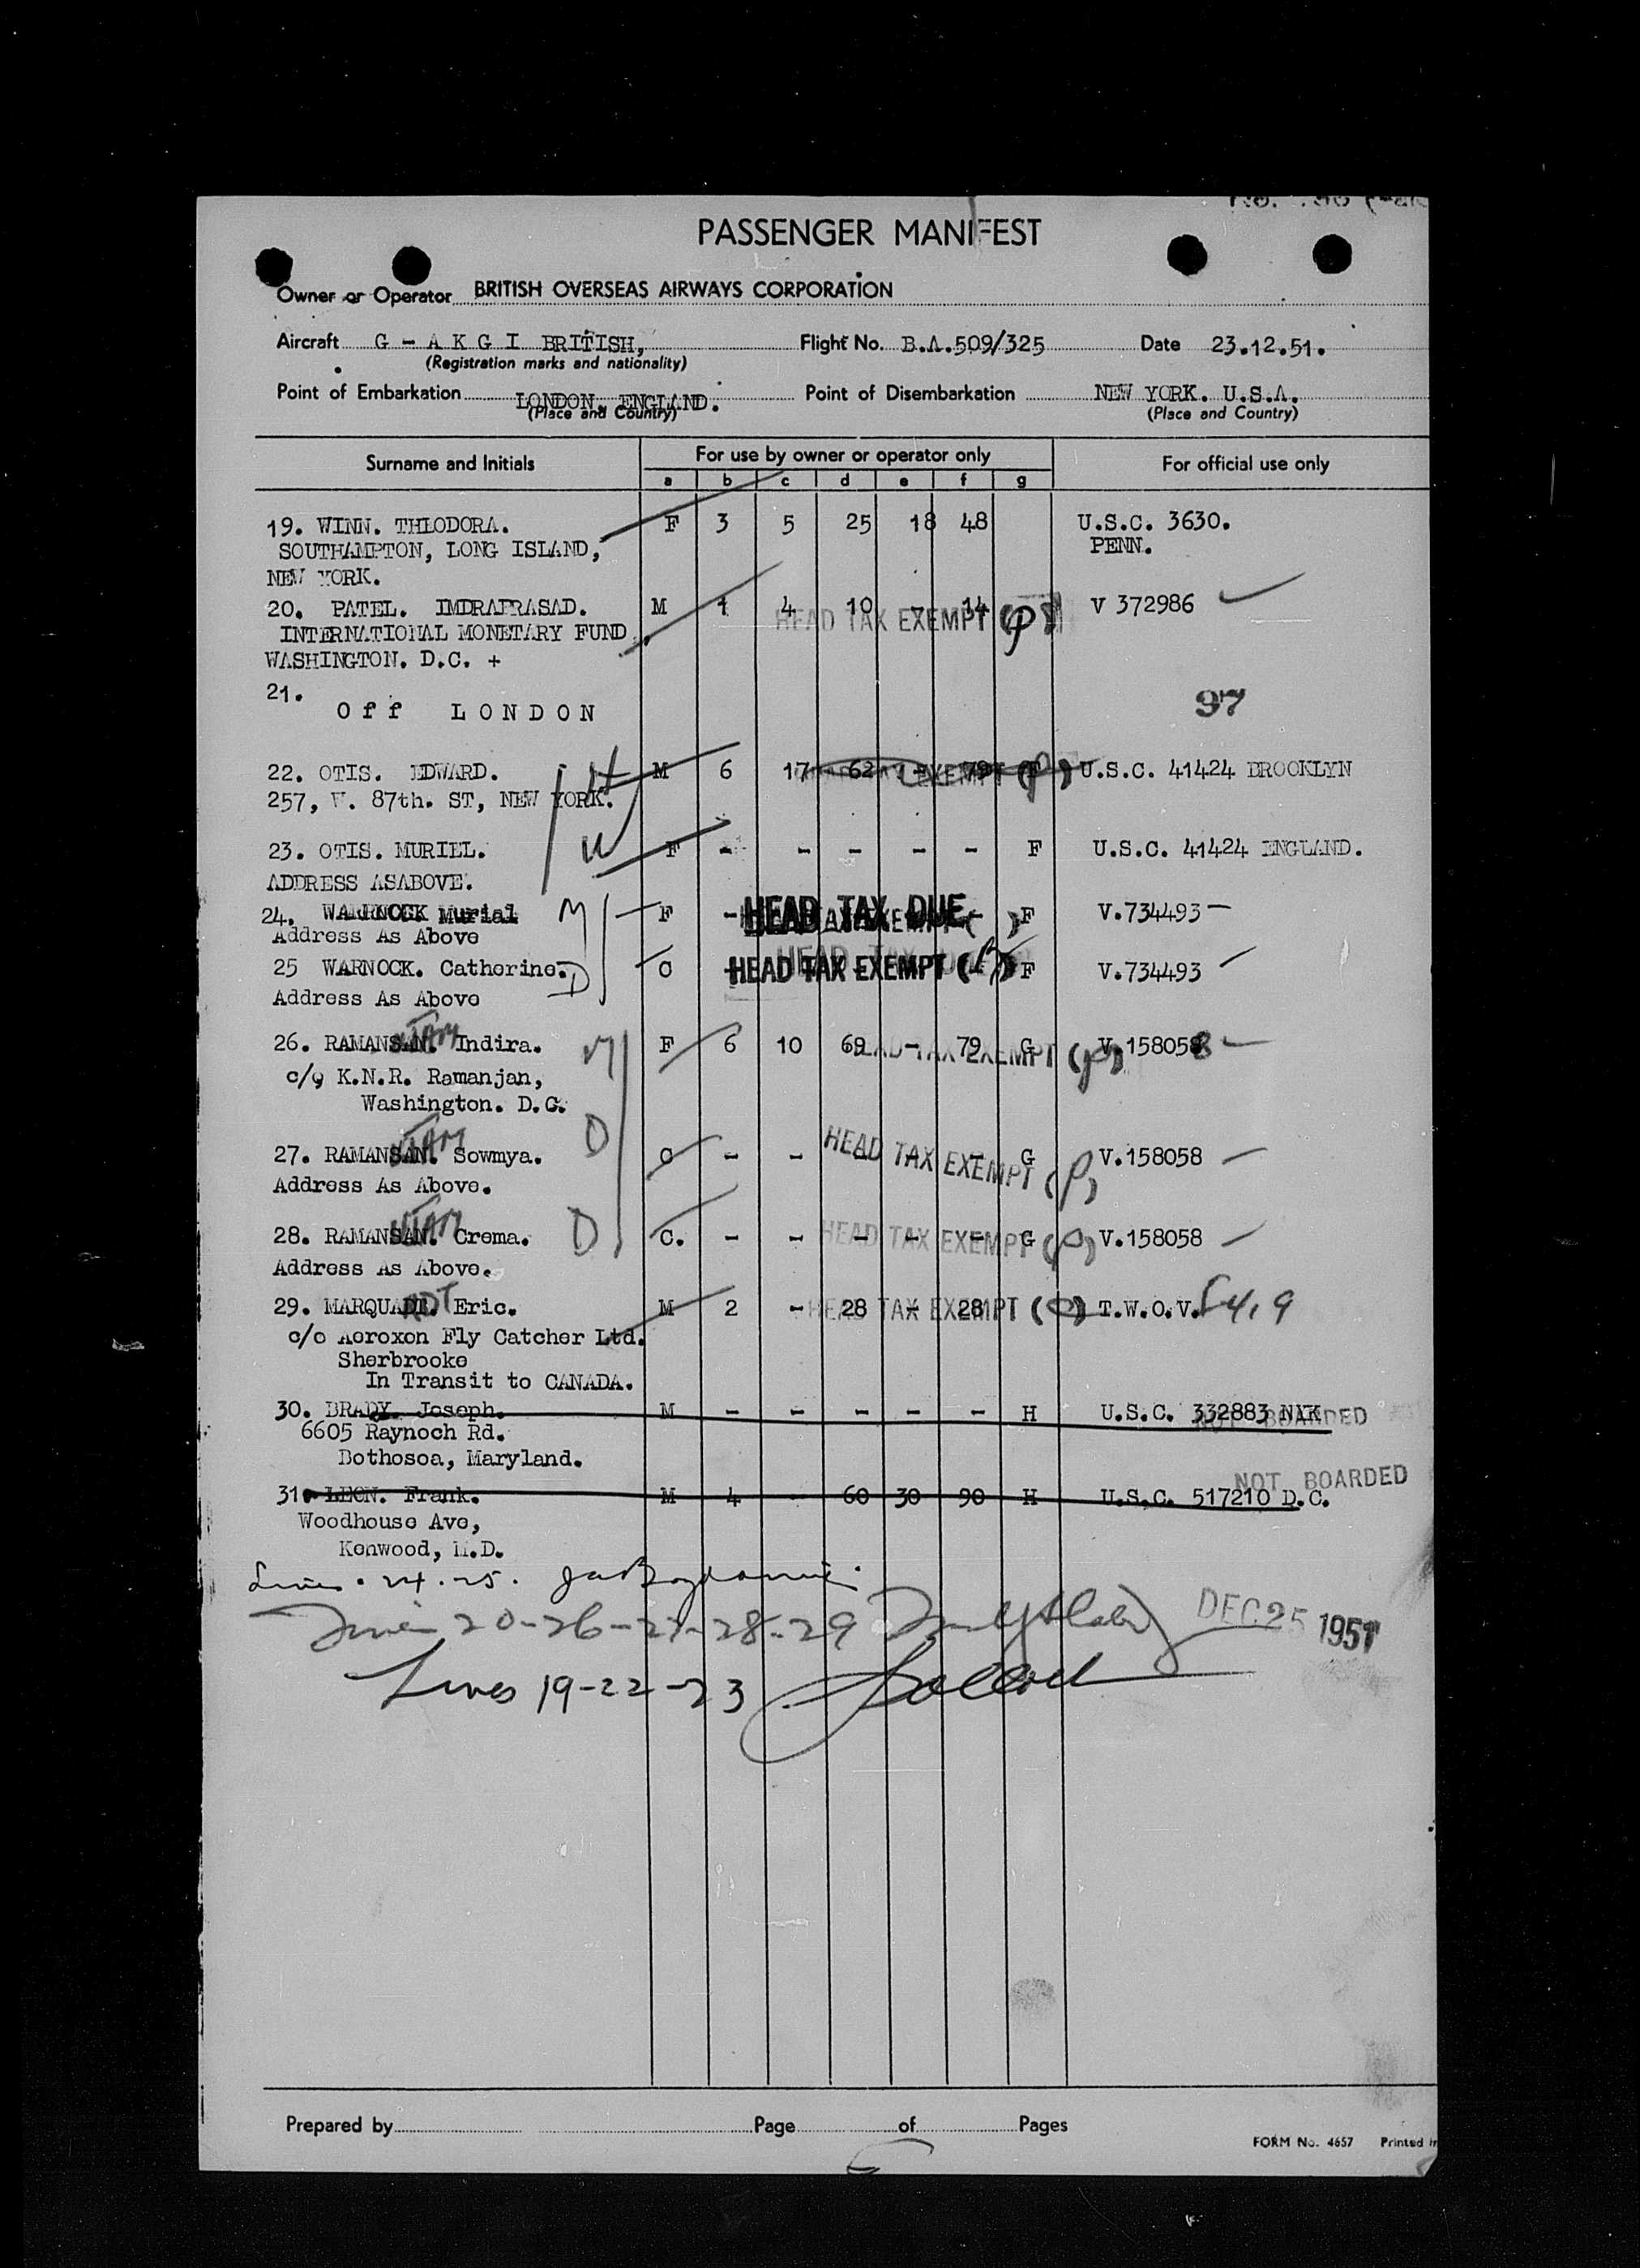 PASSENGER MANIFEST
Owner or Operator BRITISH OVERSEAS AIRWAYS CORPORATION
Aircraft G - A K G I BRITISH, Flight No. B.A.509/325 Date 23.12.51.
(Registration marks and nationality)
Point of Embarkation LONDON, ENGLAND. Point of Disembarkation NEW YORK. U.S.A.
(Place and Country) (Place and Country)
Surname and Initials For use by owner or operator only For official use only
a b c d e f g
19. WINN. THEODORA. F 3 5 25 18 48 U.S.C. 3630.
SOUTHAMPTON, LONG ISLAND, PENN.
NEW YORK.
20. PATEL. IMDRAPRASAD. M 1 4 10 - 14 V 372986
HEAD TAX EXEMPT (P)
INTERNATIONAL MONETARY FUND,
WASHINGTON. D.C. +
21.
Off LONDON 97
22. OTIS. EDWARD. H M 6 17 62 - 79 F U.S.C. 41424 BROOKLYN
257, W. 87th. ST, NEW YORK.
23. OTIS. MURIEL. W F - - - - - F U.S.C. 41424 ENGLAND.
ADDRESS ASABOVE.
24. WARNOCK Murial M F - HEAD TAX DUE - F V.734493
Address As Above
25 WARNOCK. Catherine. D C HEAD TAX EXEMPT F V.734493
Address As Above
26. RAMANSAN. Indira. M F 6 10 69 - 79 G V.158058
HEAD TAX EXEMPT (P)
c/o K.N.R. Ramanjan,
Washington. D.C.
27. RAMANSAN. Sowmya. D C - - HEAD TAX EXEMPT (P) - G V.158058
Address As Above.
28. RAMANSAN. Crema. D C. - - - - - G V.158058
HEAD TAX EXEMPT (P)
Address As Above.
29. MARQUADT. Eric. M 2 - 28 - 28 T.W.O.V.
HEAD TAX EXEMPT (P)
c/o Aeroxon Fly Catcher Ltd.
Sherbrooke
In Transit to CANADA.
30. BRADY. Joseph. M - - - - - H U.S.C. 332883 NYK
NOT BOARDED
6605 Raynoch Rd.
Bothosoa, Maryland.
NOT BOARDED
31. LEON. Frank. M 4 - 60 30 90 H U.S.C. 517210 D.C.
Woodhouse Ave,
Kenwood, M.D.
24.25.
20-26-27-28-29 DEC 25 1951
Lines 19-22-23
Prepared by Page of Pages
FORM No. 4657 Printed